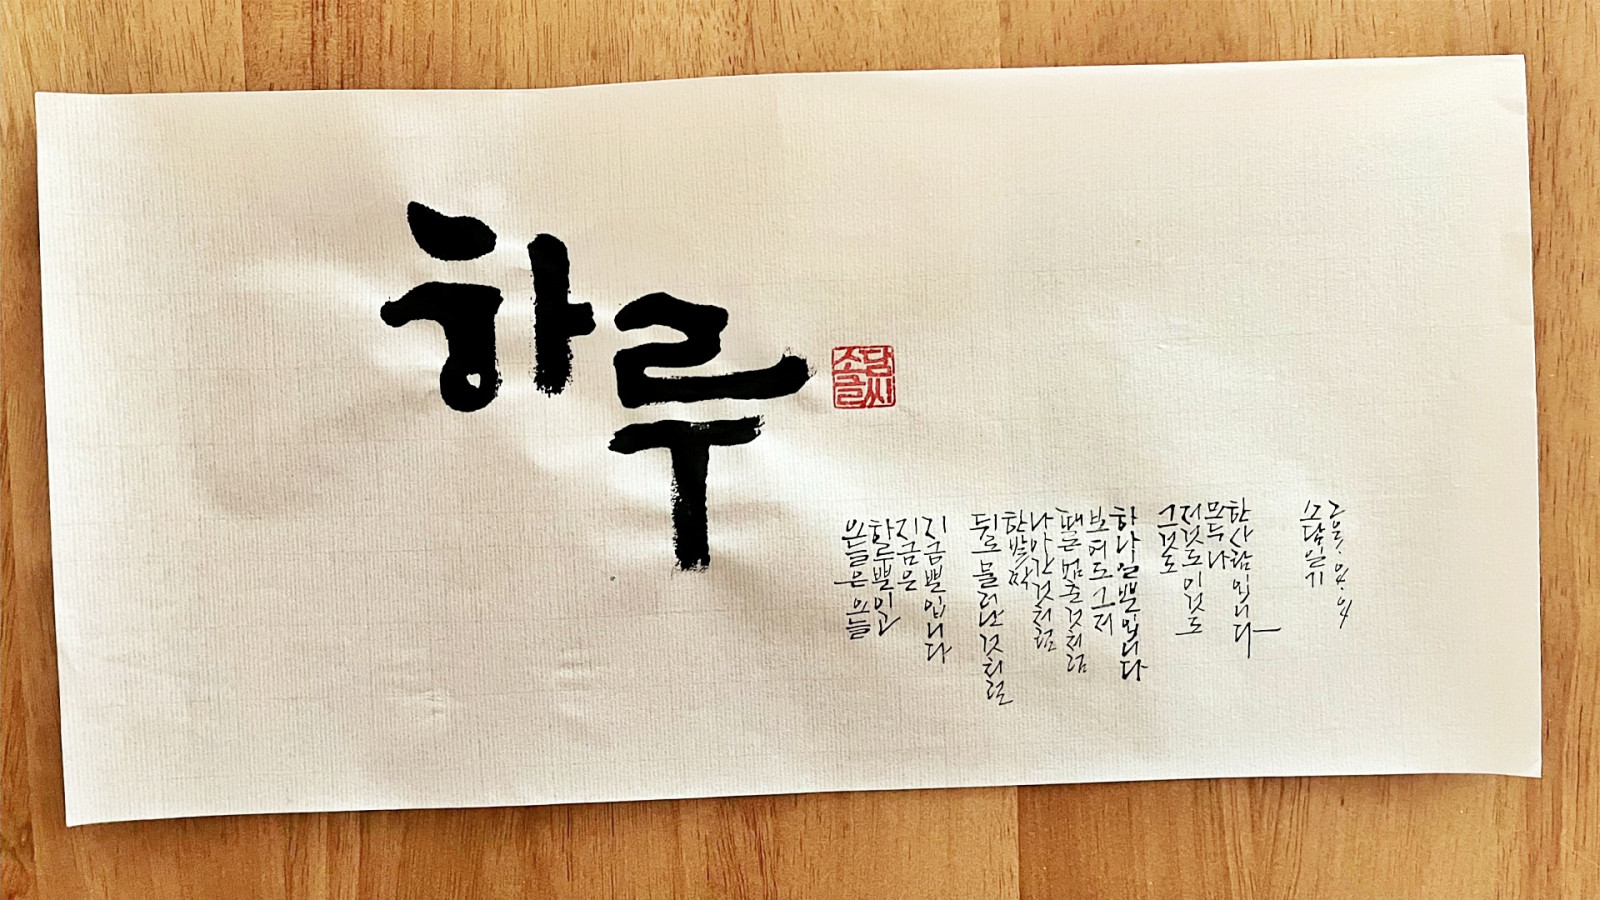 하루
소담
글씨
오늘은 오늘
하루뿐이고
지금은
지금뿐입니다
뒤로 물러난 것처럼
한발짝
나아간 것처럼
때론 멈춘 것처럼
보여도 그저
하나일뿐입니다
그것도
저것도 이것도
모두 나
한 사람입니다
소담일기